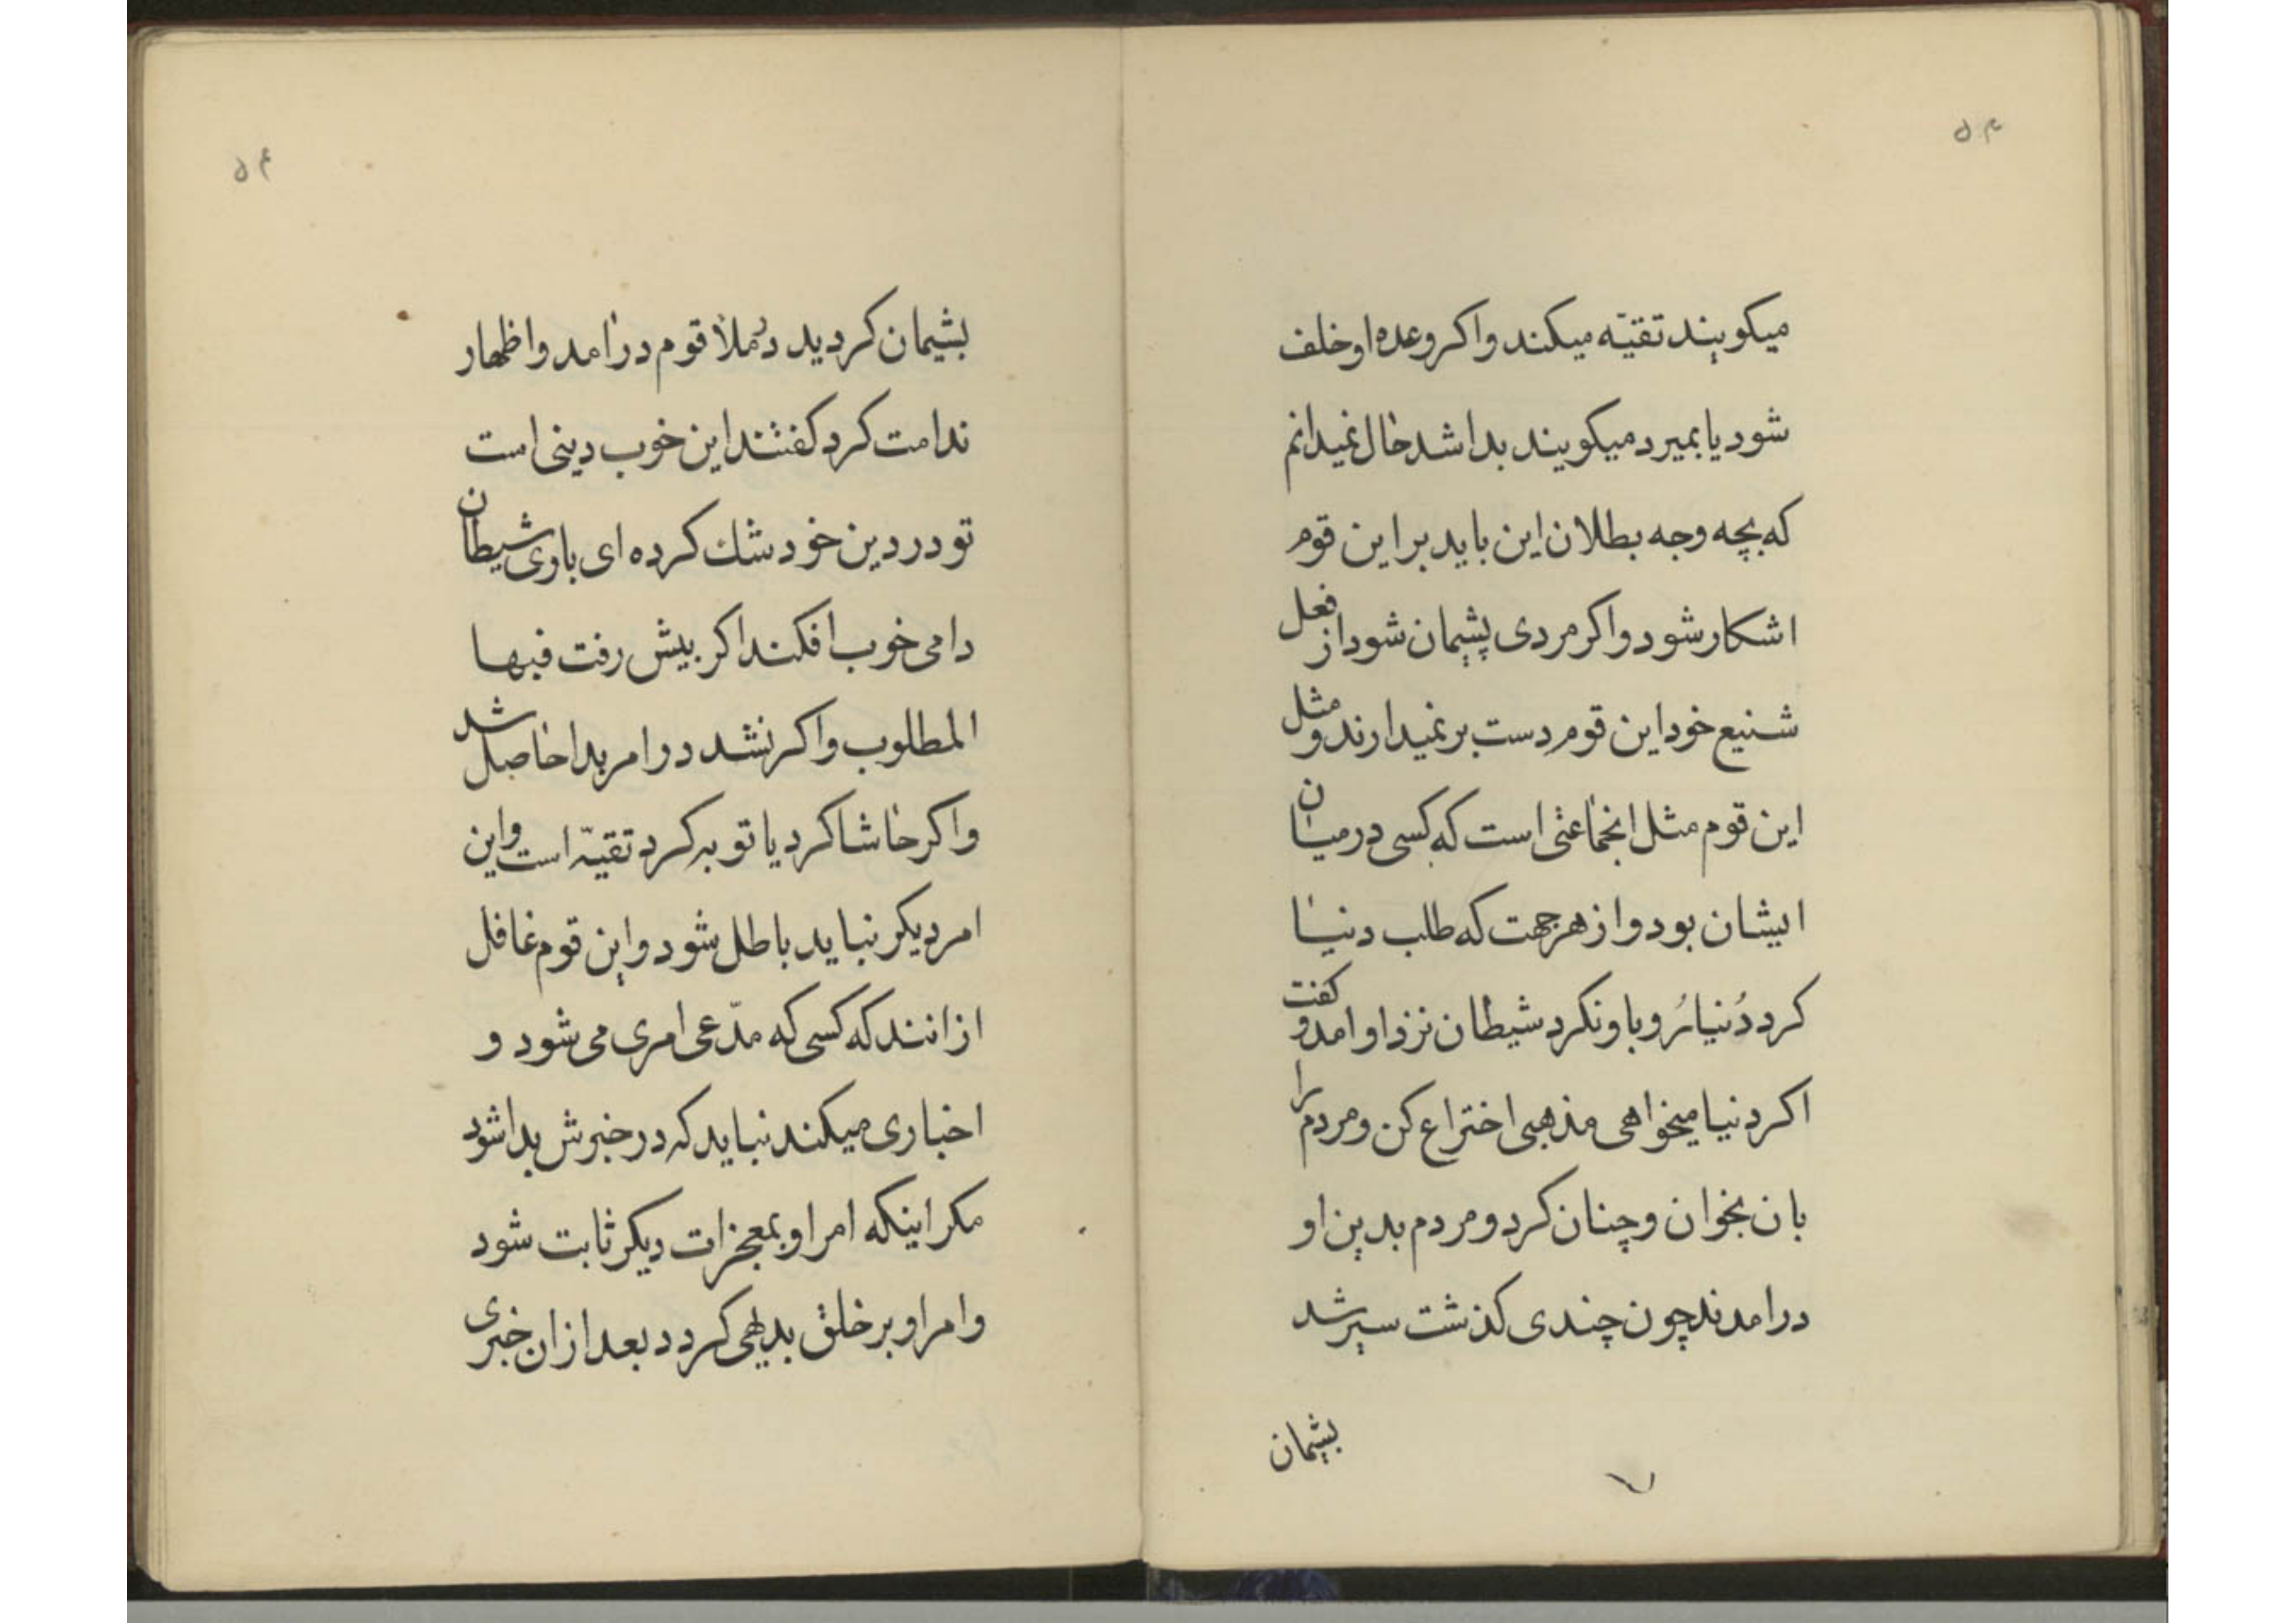 ۵۳
میکویند تقیّه میکند واکر وعده او خلف
شود یا بمیرد میکویند بدا شد حال نمیدانم
که بچه وجه بطلان این باید بر این قوم
اشکار شود واکر مردی پشیمان شود از فعل
شنیع خود این قوم دست بر نمیدارند و مثل
این قوم مثل انجماعتی است که کسی در میان
ایشان بود و از هر جهت که طلب دنیا
کرد دُنیا رُو باو نکرد شیطان نزد او امد و کفت
اکر دنیا میخواهی مذهبی اختراع کن و مردم را
بان بخوان و چنان کرد و مردم بدین او
درامدند چون چندی کذشت سیر شد
پشیمان
۵۴
پشیمان کردید در ملأ قوم درامد و اظهار
ندامت کرد کفتند این خوب دینی است
تو در دین خود شك کرده ای باری شیطان
دامی خوب افکند اکر پیش رفت فبها
المطلوب و اکر نشد در امر بدا حاصل شد
و اکر حاشا کرد یا توبه کرد تقیّه است و این
امر دیکر نباید باطل شود و این قوم غافل
از انند که کسی که مدّعی امری می شود و
اخباری میکند نباید که در خبرش بدا شود
مکر اینکه امر او بمعجزات دیکر ثابت شود
و امر او بر خلق بدیهی کردد بعد از ان خبری